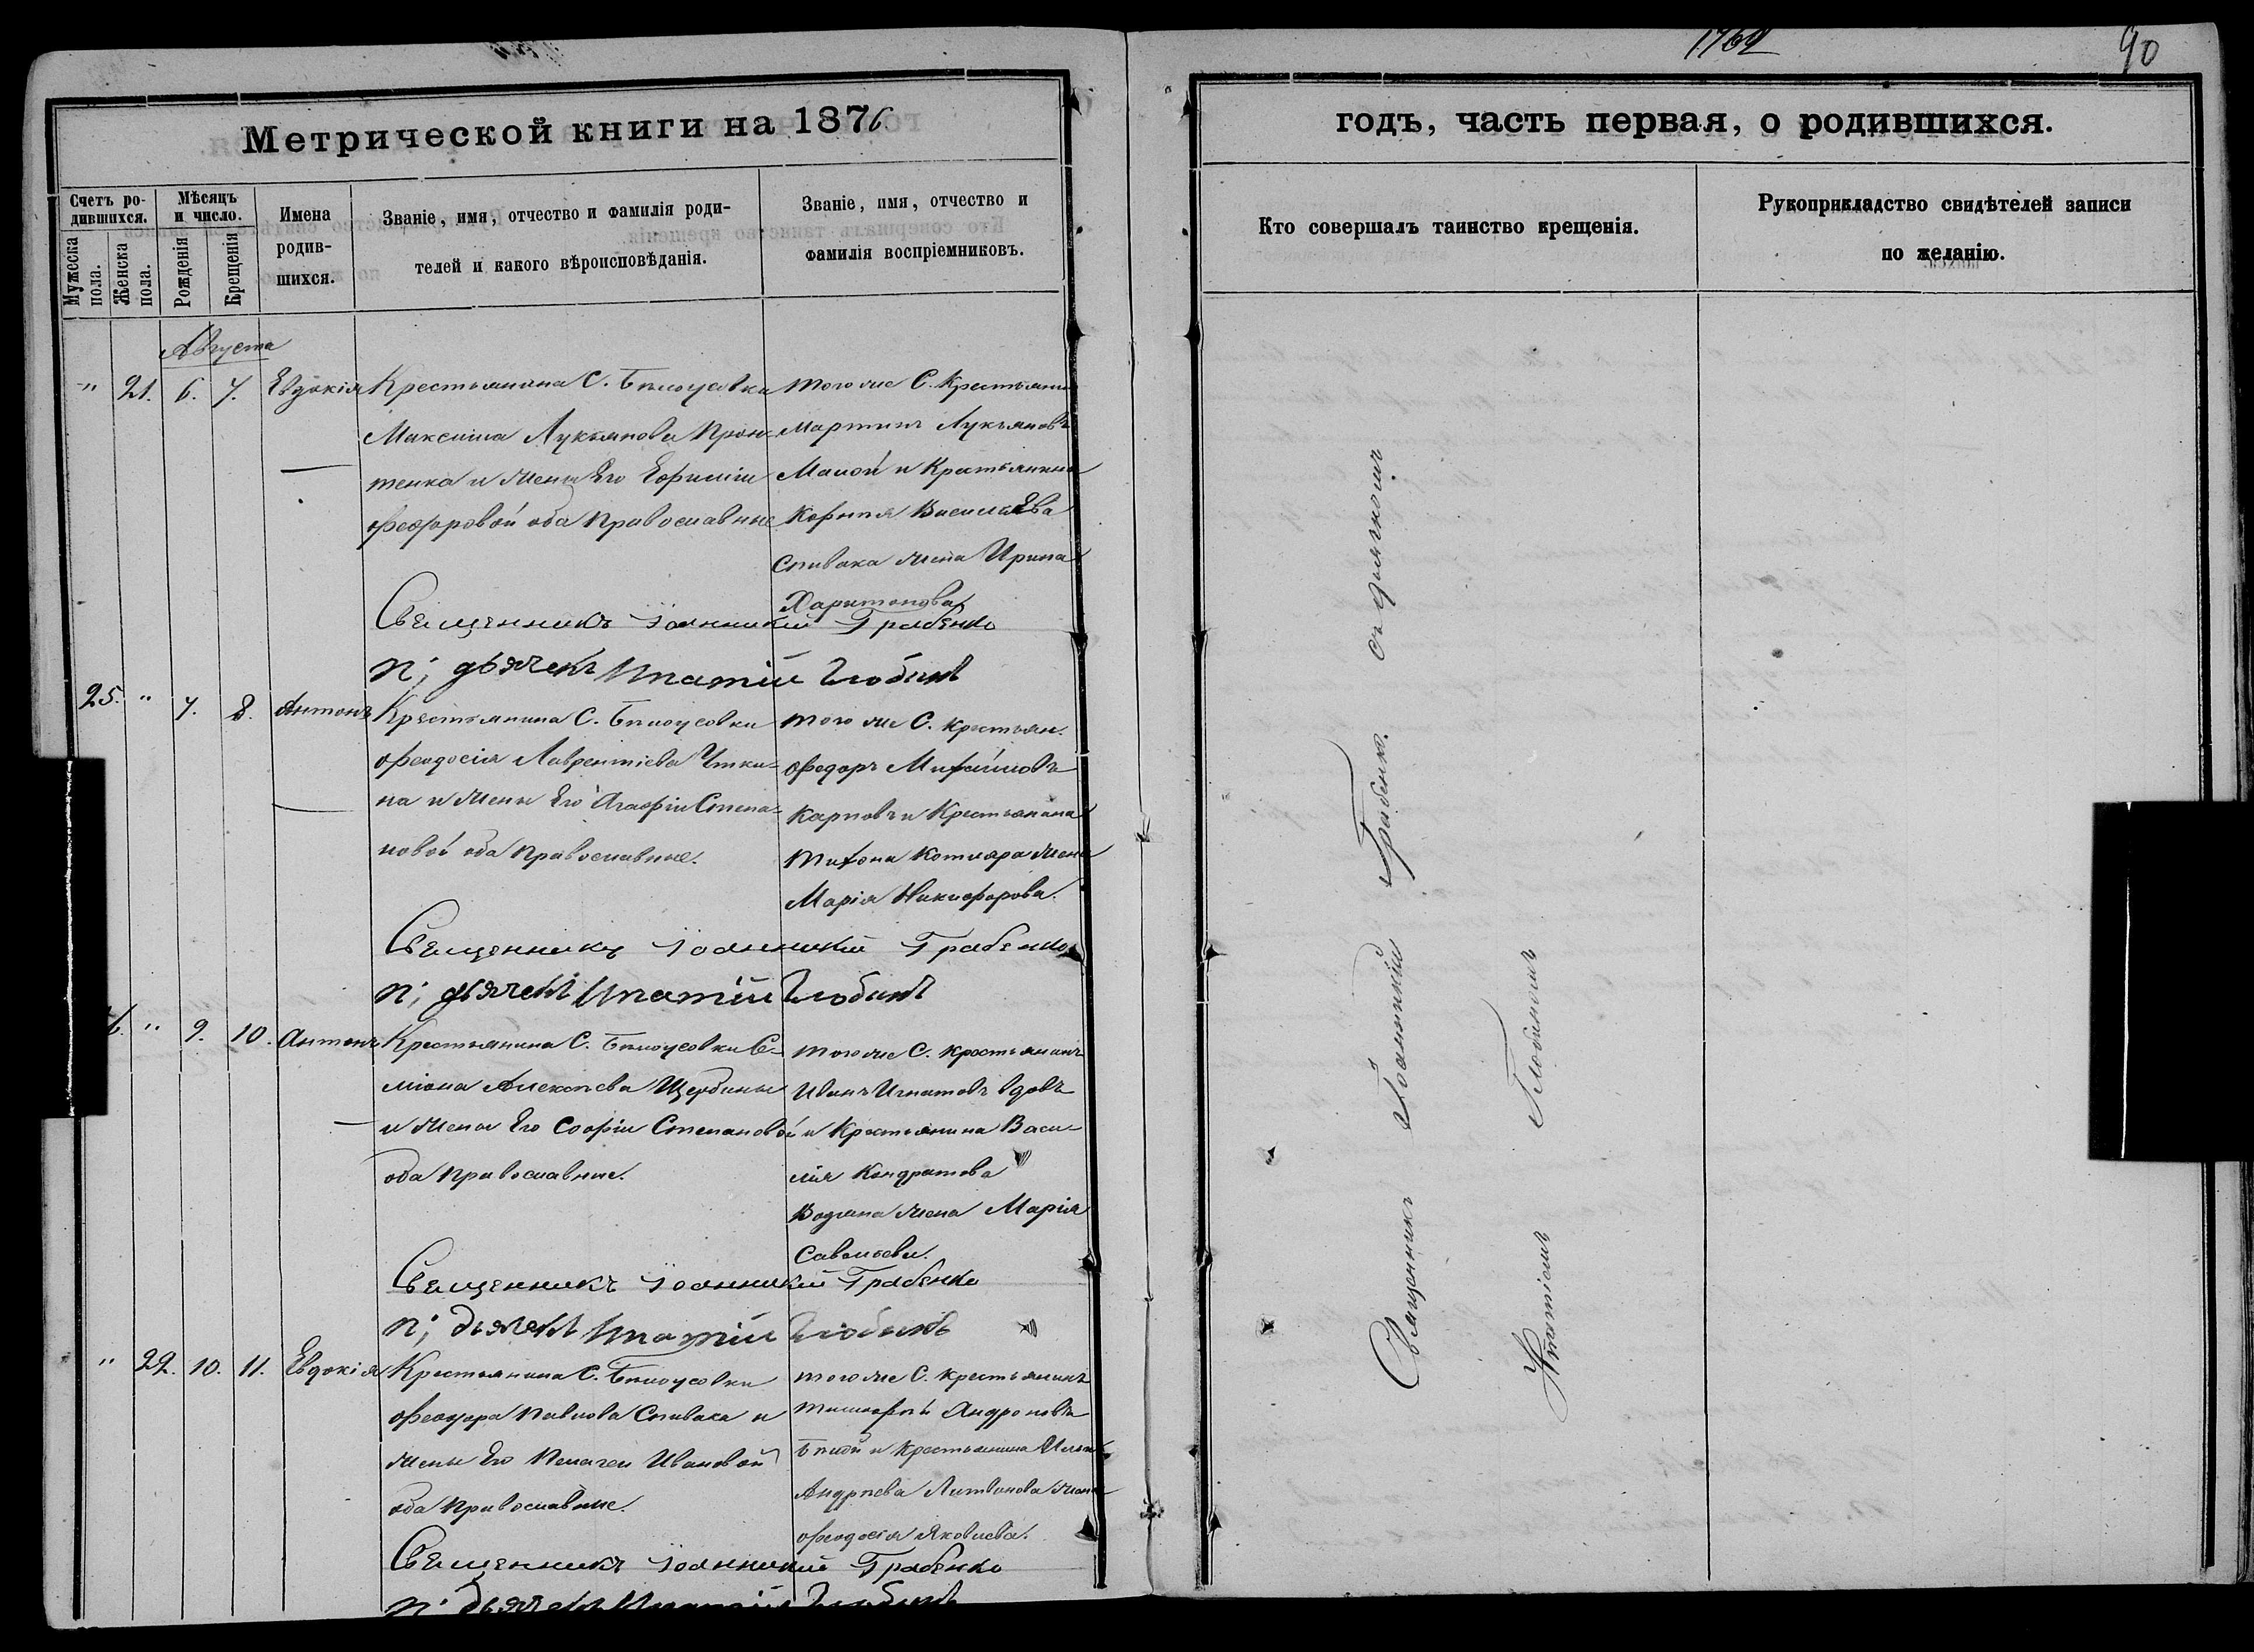 1762
90
Метрической книги на 1876
годъ, часть первая, о родившихся.
Счетъ ро-
дившихся.
Мужеска пола.
Женска пола.
Мѣсяцъ
и число.
Рожденія
Крещенія
Имена
родив-
шихся.
Званіе, имя, отчество и фамилія роди-
телей и какого вѣроисповѣданія.
Званіе, имя, отчество и
фамилія воспріемниковъ.
Кто совершалъ таинство крещенія.
Рукоприкладство свидѣтелей записи
по желанію.
Августа
" 21. 6. 7. Евдокія
Крестьянина С. Бѣлоусовки
Максима Лукьянова
и жены Его Ефиміи
Феодоровой оба Православные
того же С. Крестьянинъ
Мартинъ Лукьяновъ
и Крестьянина
Корнія Василіева
Спивака жена Ирина
Харитонова
Священникъ Іоанникій Грабенко
п; дьячекъ Ипатій Глобинъ
25. " 7. 8. Антонъ
Крестьянина С. Бѣлоусовки
Феодосія Лаврентіева
на и жены Его Агафіи Степа-
новой оба Православные.
того же С. крестьян.
Федоръ Михайловъ
Карповъ и Крестьянина
Тихона Котляра жена
Марія Никифорова.
Священникъ Іоанникій Грабенко
п; дьячекъ Ипатій Глобинъ
6. " 9. 10. Антонъ
Крестьянина С. Бѣлоусовки Си-
міона Алексѣева Щербины
и жены Его Софіи Степановой
оба Православные.
того же С. крестьянинъ
Иванъ Игнатовъ
и Крестьянина Васи-
лія Кондратова
жена Марія
Савельева.
Священникъ Іоанникій Грабенко
п; дьячекъ Ипатій Глобинъ
" 22. 10. 11. Евдокія
Крестьянина С. Бѣлоусовки
Феодора Павлова Спивака и
жены Его Пелагеи Ивановой
оба Православные.
того же С. крестьянинъ
Тимофѣй Андроновъ
и Крестьянина
Андрѣева Литвинова жена
Феодосія Яковлева.
Священникъ Іоанникій Грабенко
п; дьячекъ Ипатій Глобинъ
Священникъ Іоанникій Грабенко. съ дьячкомъ
Ипатіемъ Глобиномъ